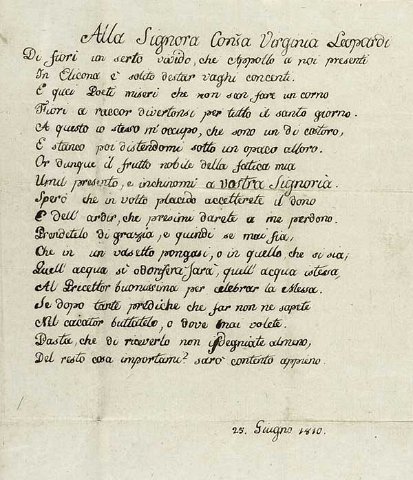 Alla Signora Contsa Virginia Leopardi
Di fiori un serto vavido, che Appollo a noi presenti
In Elicona è solito destar vaghi concenti.
E quei Poeti miseri che non san fare un corno
Fiori a raccor divertonsi per tutto il santo giorno.
A questo io stesso m'occupo, che sono un di costoro,
E stanco poi distendomi sotto un opaco alloro.
Or dunque il frutto nobile della fatica mia
Umil presento, e inchinomi a vostra Signoria.
Spero che in volto placido accetterete il dono
E dell' ardir, che presimi darete a me perdono.
Prendetelo di grazia, e quindi se mai fia,
Che in un vasetto pongasi, o in quello che si sia,
Quell' acqua sì odorifera farà, quell' acqua istessa
Al Precettor buonissima per celebrar la Messa.
Se dopo tante prediche che far non ne sapete
Nel cacator buttatelo, o dove mai volete.
Basta, che di riceverlo non isdegniate almeno,
Del resto cosa importami? sarò contento appieno.
25. Giugno 1810.